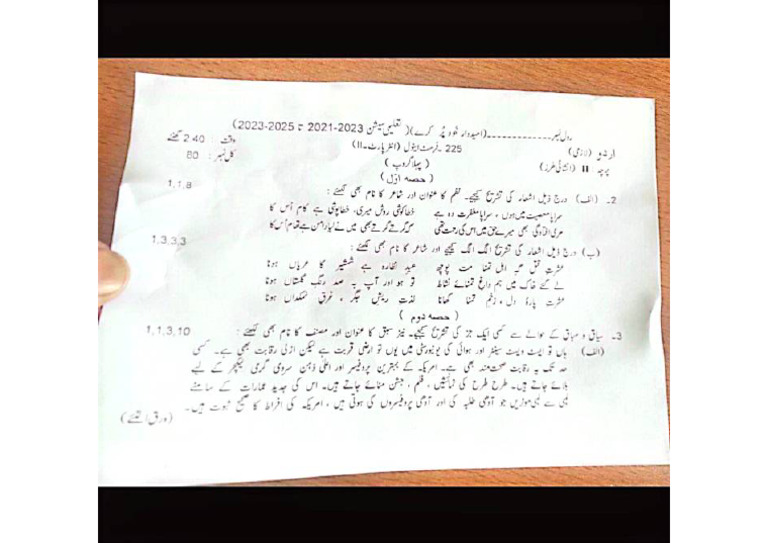 رول نمبر ------------ (امیدوار خود پُر کرے) (تعلیمی سیشن 2023-2021 تا 2025-2023)
اردو (لازمی) 225 ۔ فرسٹ اینول (انٹر پارٹ ۔ II) وقت : 2.40 گھنٹے
پرچہ II (انشائی طرز) (پہلا گروپ) کل نمبر : 80
(حصہ اوّل)
2۔ (الف) درج ذیل اشعار کی تشریح کیجیے۔ نظم کا عنوان اور شاعر کا نام بھی لکھئے : 1,1,8
سراپا معصیت میں ہوں ، سراپا مغفرت وہ ہے خطا کوشی روش میری، خطا پوشی ہے کام اُس کا
مری افتادگی بھی میرے حق میں اس کی رحمت تھی کہ گرتے گرتے بھی میں نے لیا دامن ہے تھام اُس کا
(ب) درج ذیل اشعار کی تشریح الگ الگ کیجیے اور شاعر کا نام بھی لکھئے : 1,3,3,3
عشرتِ قتل گہہ اہل تمنا مت پوچھ عیدِ نظارہ ہے شمشیر کا عریاں ہونا
لے گئے خاک میں ہم داغِ تمنائے نشاط تو ہو اور آپ بہ صد رنگ گلستاں ہونا
عشرتِ پارۂ دل ، زخمِ تمنا کھانا لذتِ ریش جگر ، غرقِ نمکداں ہونا
(حصہ دوم)
3۔ سیاق و سباق کے حوالے سے کسی ایک جز کی تشریح کیجیے۔ نیز سبق کا عنوان اور مصنف کا نام بھی لکھئے : 1,1,3,10
(الف) ہاں تو ایسٹ ویسٹ سینٹر اور ہوائی کی یونیورسٹی میں یوں تو ارضی قربت ہے لیکن ازلی رقابت بھی ہے۔ کسی
حد تک یہ رقابت صحت مند بھی ہے۔ امریکہ کے بہترین پروفیسر اور اعلیٰ ذہن سردی گرمی لیکچر کے لیے
بلائے جاتے ہیں۔ طرح طرح کی نمائشیں ، فلم ، جشن منائے جاتے ہیں۔ اس کی جدید عمارات کے سامنے
لمبی سے لمبی موٹریں جو آدھی طلبہ کی اور آدھی پروفیسروں کی ہوتی ہیں ، امریکہ کی افراط کا صحیح ثبوت ہیں۔
(ورق الٹئے)